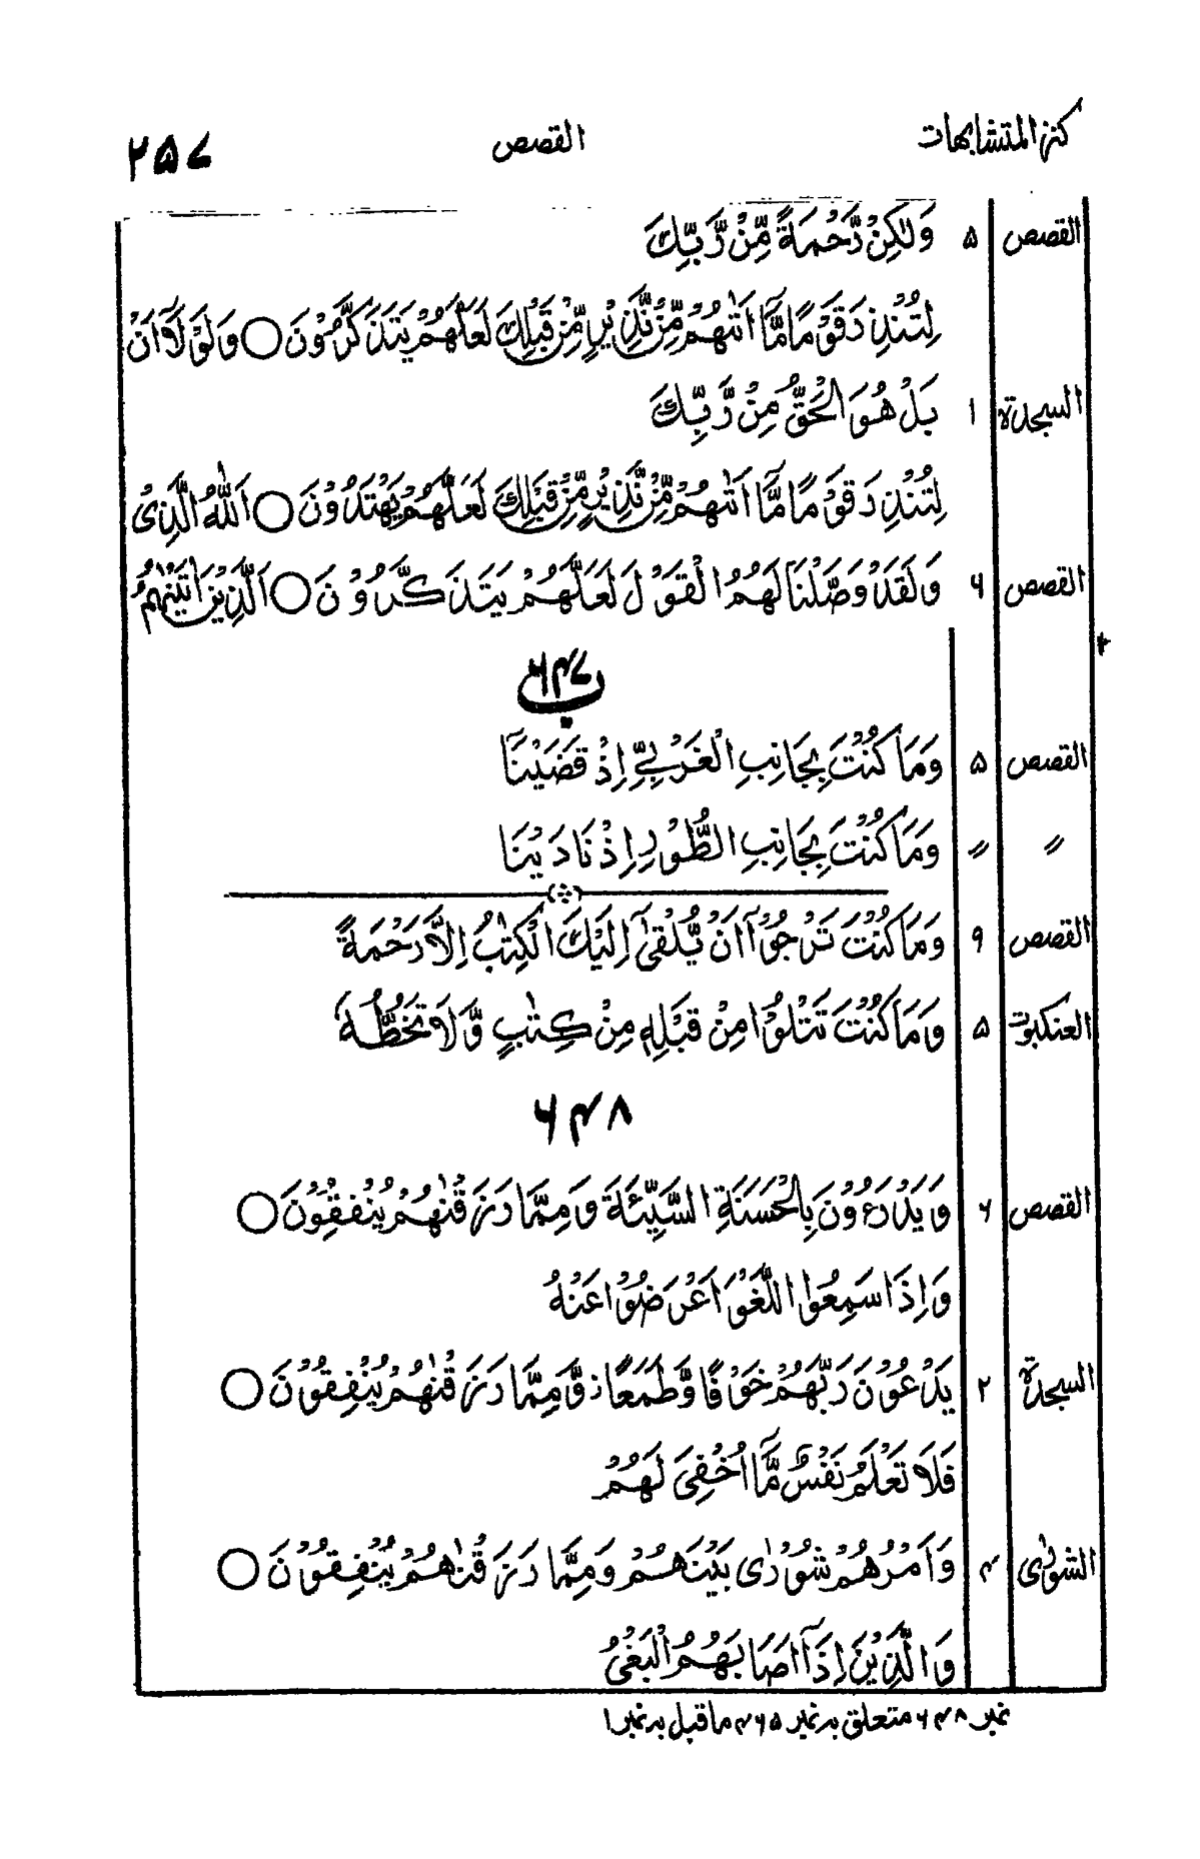 كنز المتشابهات القصص ٢٥٧
القصص ۵ وَلٰكِنْ رَّحْمَةً مِّنْ رَّبِّكَ
لِتُنْذِرَ قَوْمًا مَّآ اَتٰىهُمْ مِّنْ نَّذِيْرٍ مِّنْ قَبْلِكَ لَعَلَّهُمْ يَتَذَكَّرُوْنَ ○ وَلَوْ لَآ اَنْ
السجدة ١ بَلْ هُوَ الْحَقُّ مِنْ رَّبِّكَ
لِتُنْذِرَ قَوْمًا مَّآ اَتٰىهُمْ مِّنْ نَّذِيْرٍ مِّنْ قَبْلِكَ لَعَلَّهُمْ يَهْتَدُوْنَ ○ اَللّٰهُ الَّذِىْ
القصص ۶ وَلَقَدْ وَصَّلْنَا لَهُمُ الْقَوْلَ لَعَلَّهُمْ يَتَذَكَّرُوْنَ ○ اَلَّذِيْنَ اٰتَيْنٰهُمُ
۶۴۷ ب
القصص ۵ وَمَا كُنْتَ بِجَانِبِ الْغَرْبِيِّ اِذْ قَضَيْنَآ
〃 〃 وَمَا كُنْتَ بِجَانِبِ الطُّوْرِ اِذْ نَادَيْنَا
القصص ٩ وَمَا كُنْتَ تَرْجُوْٓا اَنْ يُّلْقٰىٓ اِلَيْكَ الْكِتٰبُ اِلَّا رَحْمَةً
العنكبوت ۵ وَمَا كُنْتَ تَتْلُوْا مِنْ قَبْلِهٖ مِنْ كِتٰبٍ وَّلَا تَخُطُّهٗ
۶۴۸
القصص ۶ وَيَدْرَءُوْنَ بِالْحَسَنَةِ السَّيِّئَةَ وَمِمَّا رَزَقْنٰهُمْ يُنْفِقُوْنَ ○
وَاِذَا سَمِعُوا اللَّغْوَ اَعْرَضُوْا عَنْهُ
السجدة ٢ يَدْعُوْنَ رَبَّهُمْ خَوْفًا وَّطَمَعًا ز وَّمِمَّا رَزَقْنٰهُمْ يُنْفِقُوْنَ ○
فَلَا تَعْلَمُ نَفْسٌ مَّآ اُخْفِىَ لَهُمْ
الشورٰى ۴ وَاَمْرُهُمْ شُوْرٰى بَيْنَهُمْ وَمِمَّا رَزَقْنٰهُمْ يُنْفِقُوْنَ ○
وَالَّذِيْنَ اِذَآ اَصَابَهُمُ الْبَغْىُ
نمبر ۶۴۸ متعلق بہ نمبر ۴۶۵ ماقبل بہ نمبر ۱